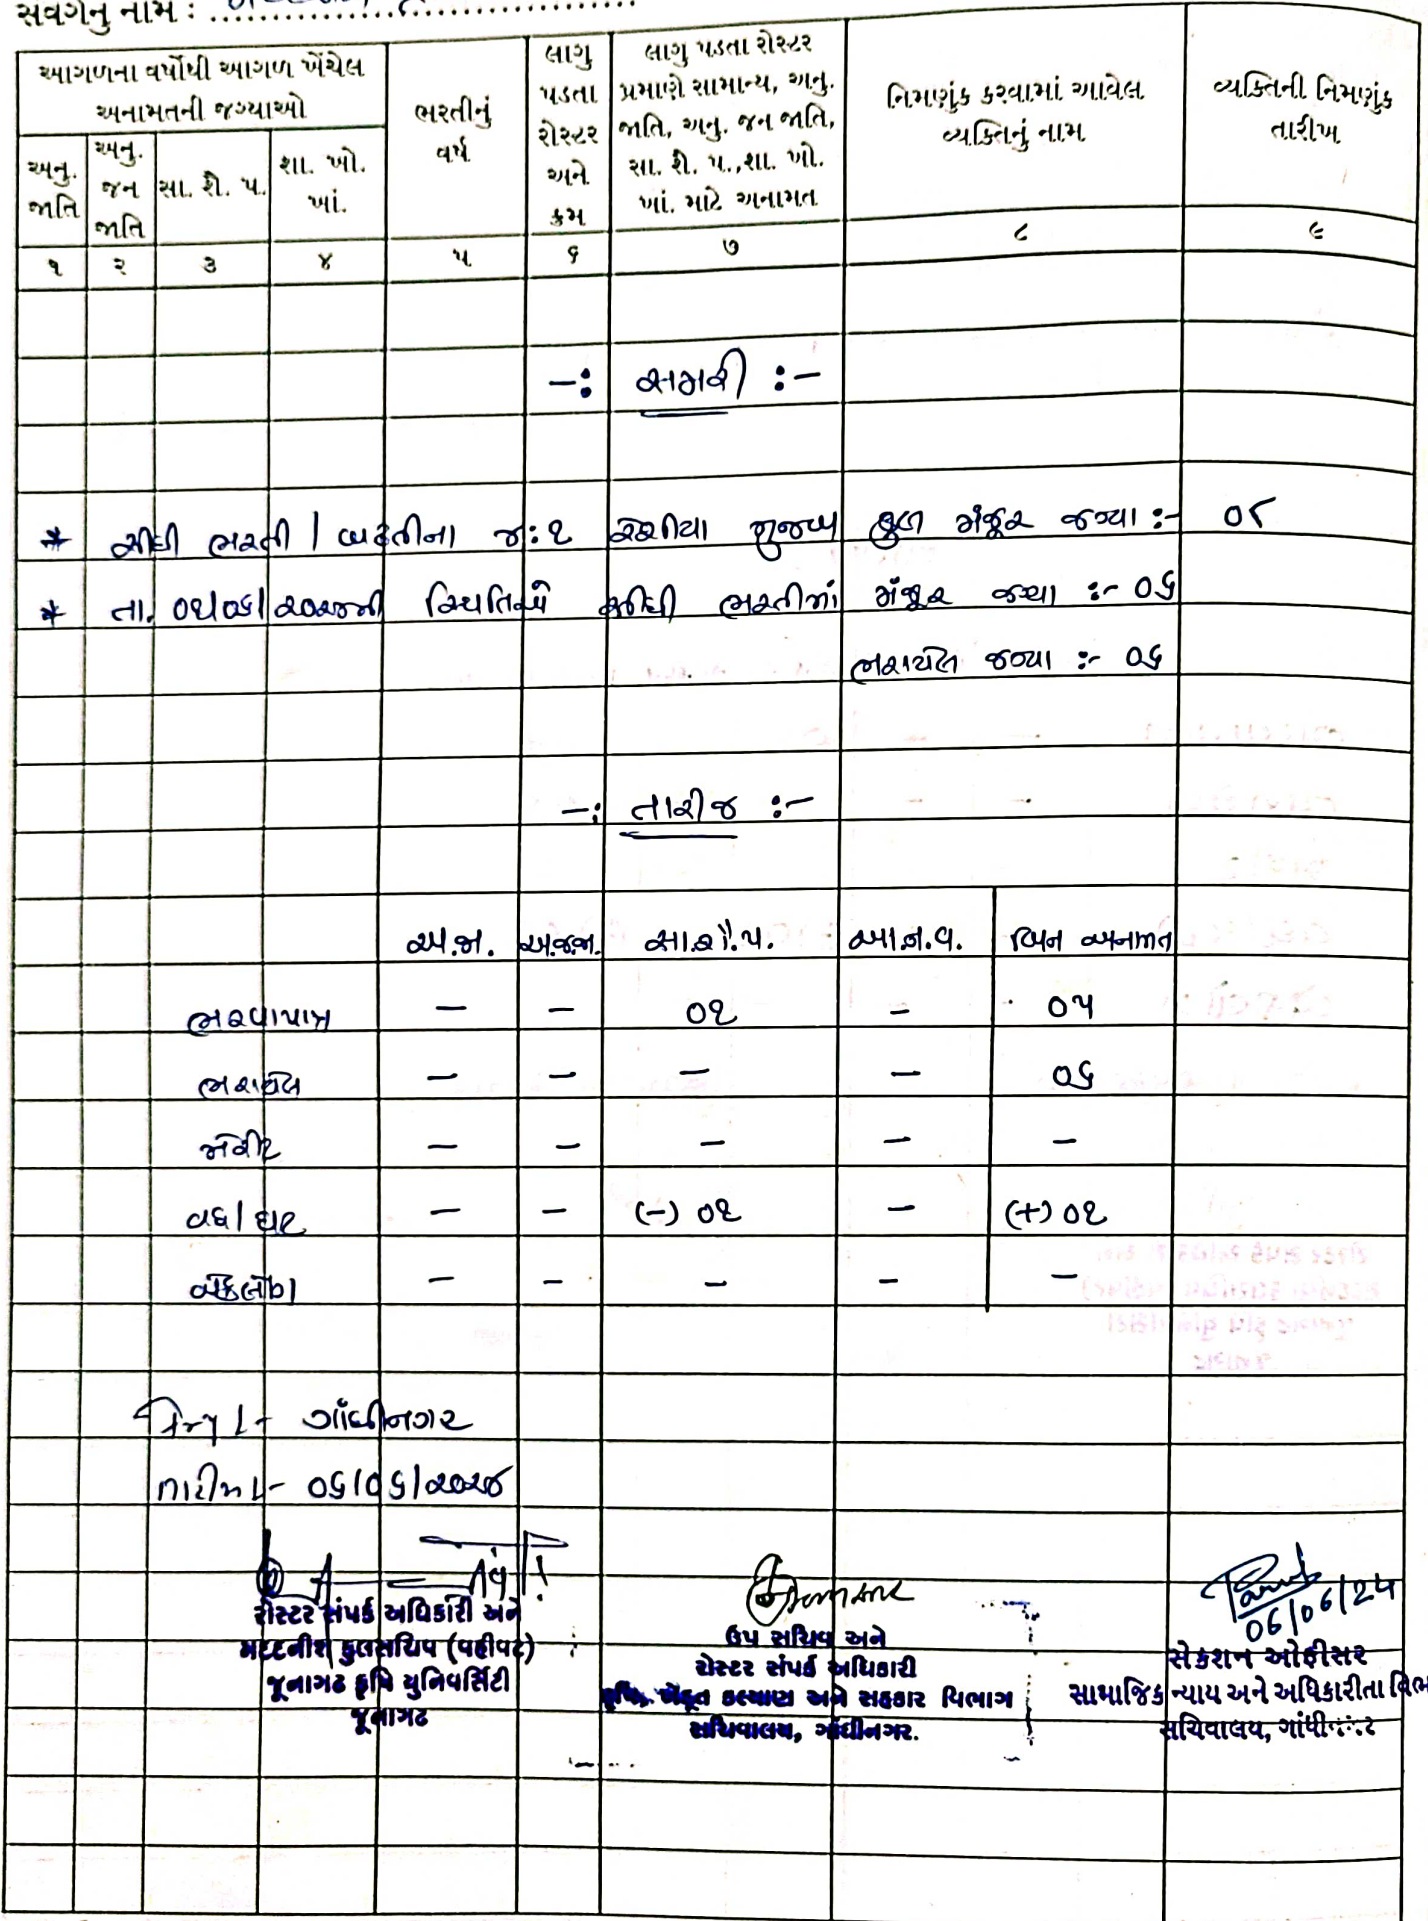 સંવર્ગનું નામ :
આગળના વર્ષોથી આગળ ખેંચેલ અનામતની જગ્યાઓ
ભરતીનું વર્ષ
લાગુ પડતા રોસ્ટર અને ક્રમ
લાગુ પડતા રોસ્ટર પ્રમાણે સામાન્ય, અનુ. જાતિ, અનુ. જન જાતિ, સા. શૈ. પ.,શા. ખો. ખાં. માટે અનામત
નિમણુંક કરવામાં આવેલ વ્યક્તિનું નામ
વ્યક્તિની નિમણુંક તારીખ
અનુ. જાતિ
અનુ. જન જાતિ
સા. શૈ. પ.
શા. ખો. ખાં.
૧ ૨ ૩ ૪ ૫ ૬ ૭ ૮ ૯
-: :-
* સીધી ભરતી / બઢતીના ૧:૨ રેશીયા મુજબ કુલ મંજૂર જગ્યા :- ૦૮
* તા. ૦૧/૦૬/૨૦૨૪ની સ્થિતિએ સીધી ભરતીમાં મંજૂર જગ્યા :- ૦૬
ભરાયેલ જગ્યા :- ૦૬
-: તારીજ :-
અ.જા. અ.જ.જા. સા.શૈ.પ. આ.ન.વ. બિન અનામત
ભરવાપાત્ર - - ૦૧ - ૦૫
ભરાયેલ - - - - ૦૬
મેરીટ - - - - -
વધ/ઘટ - - (-) ૦૧ - (+) ૦૧
બેકલોગ - - - - -
ગાંધીનગર
તારીખ :- ૦૬/૦૬/૨૦૨૪
06/06/24
રોસ્ટર સંપર્ક અધિકારી અને
મદદનીશ કુલસચિવ (વહીવટ)
જૂનાગઢ કૃષિ યુનિવર્સિટી
જૂનાગઢ
ઉપ સચિવ અને
રોસ્ટર સંપર્ક અધિકારી
કૃષિ, ખેડૂત કલ્યાણ અને સહકાર વિભાગ
સચિવાલય, ગાંધીનગર.
સેકશન ઓફીસર
સામાજિક ન્યાય અને અધિકારીતા વિભ
સચિવાલય, ગાંધીનગર